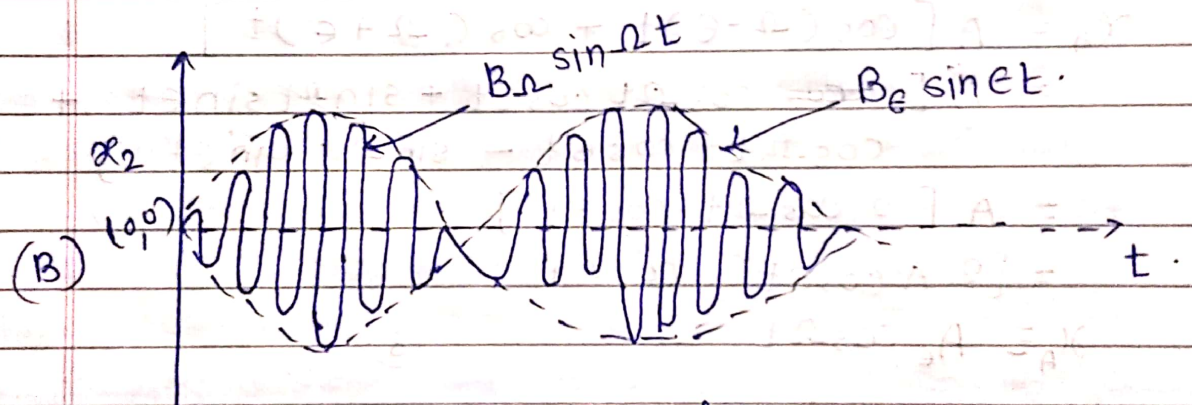 B_Ω sin Ωt
B_ε sin εt.
x₂
(0,0)
(B)
t.